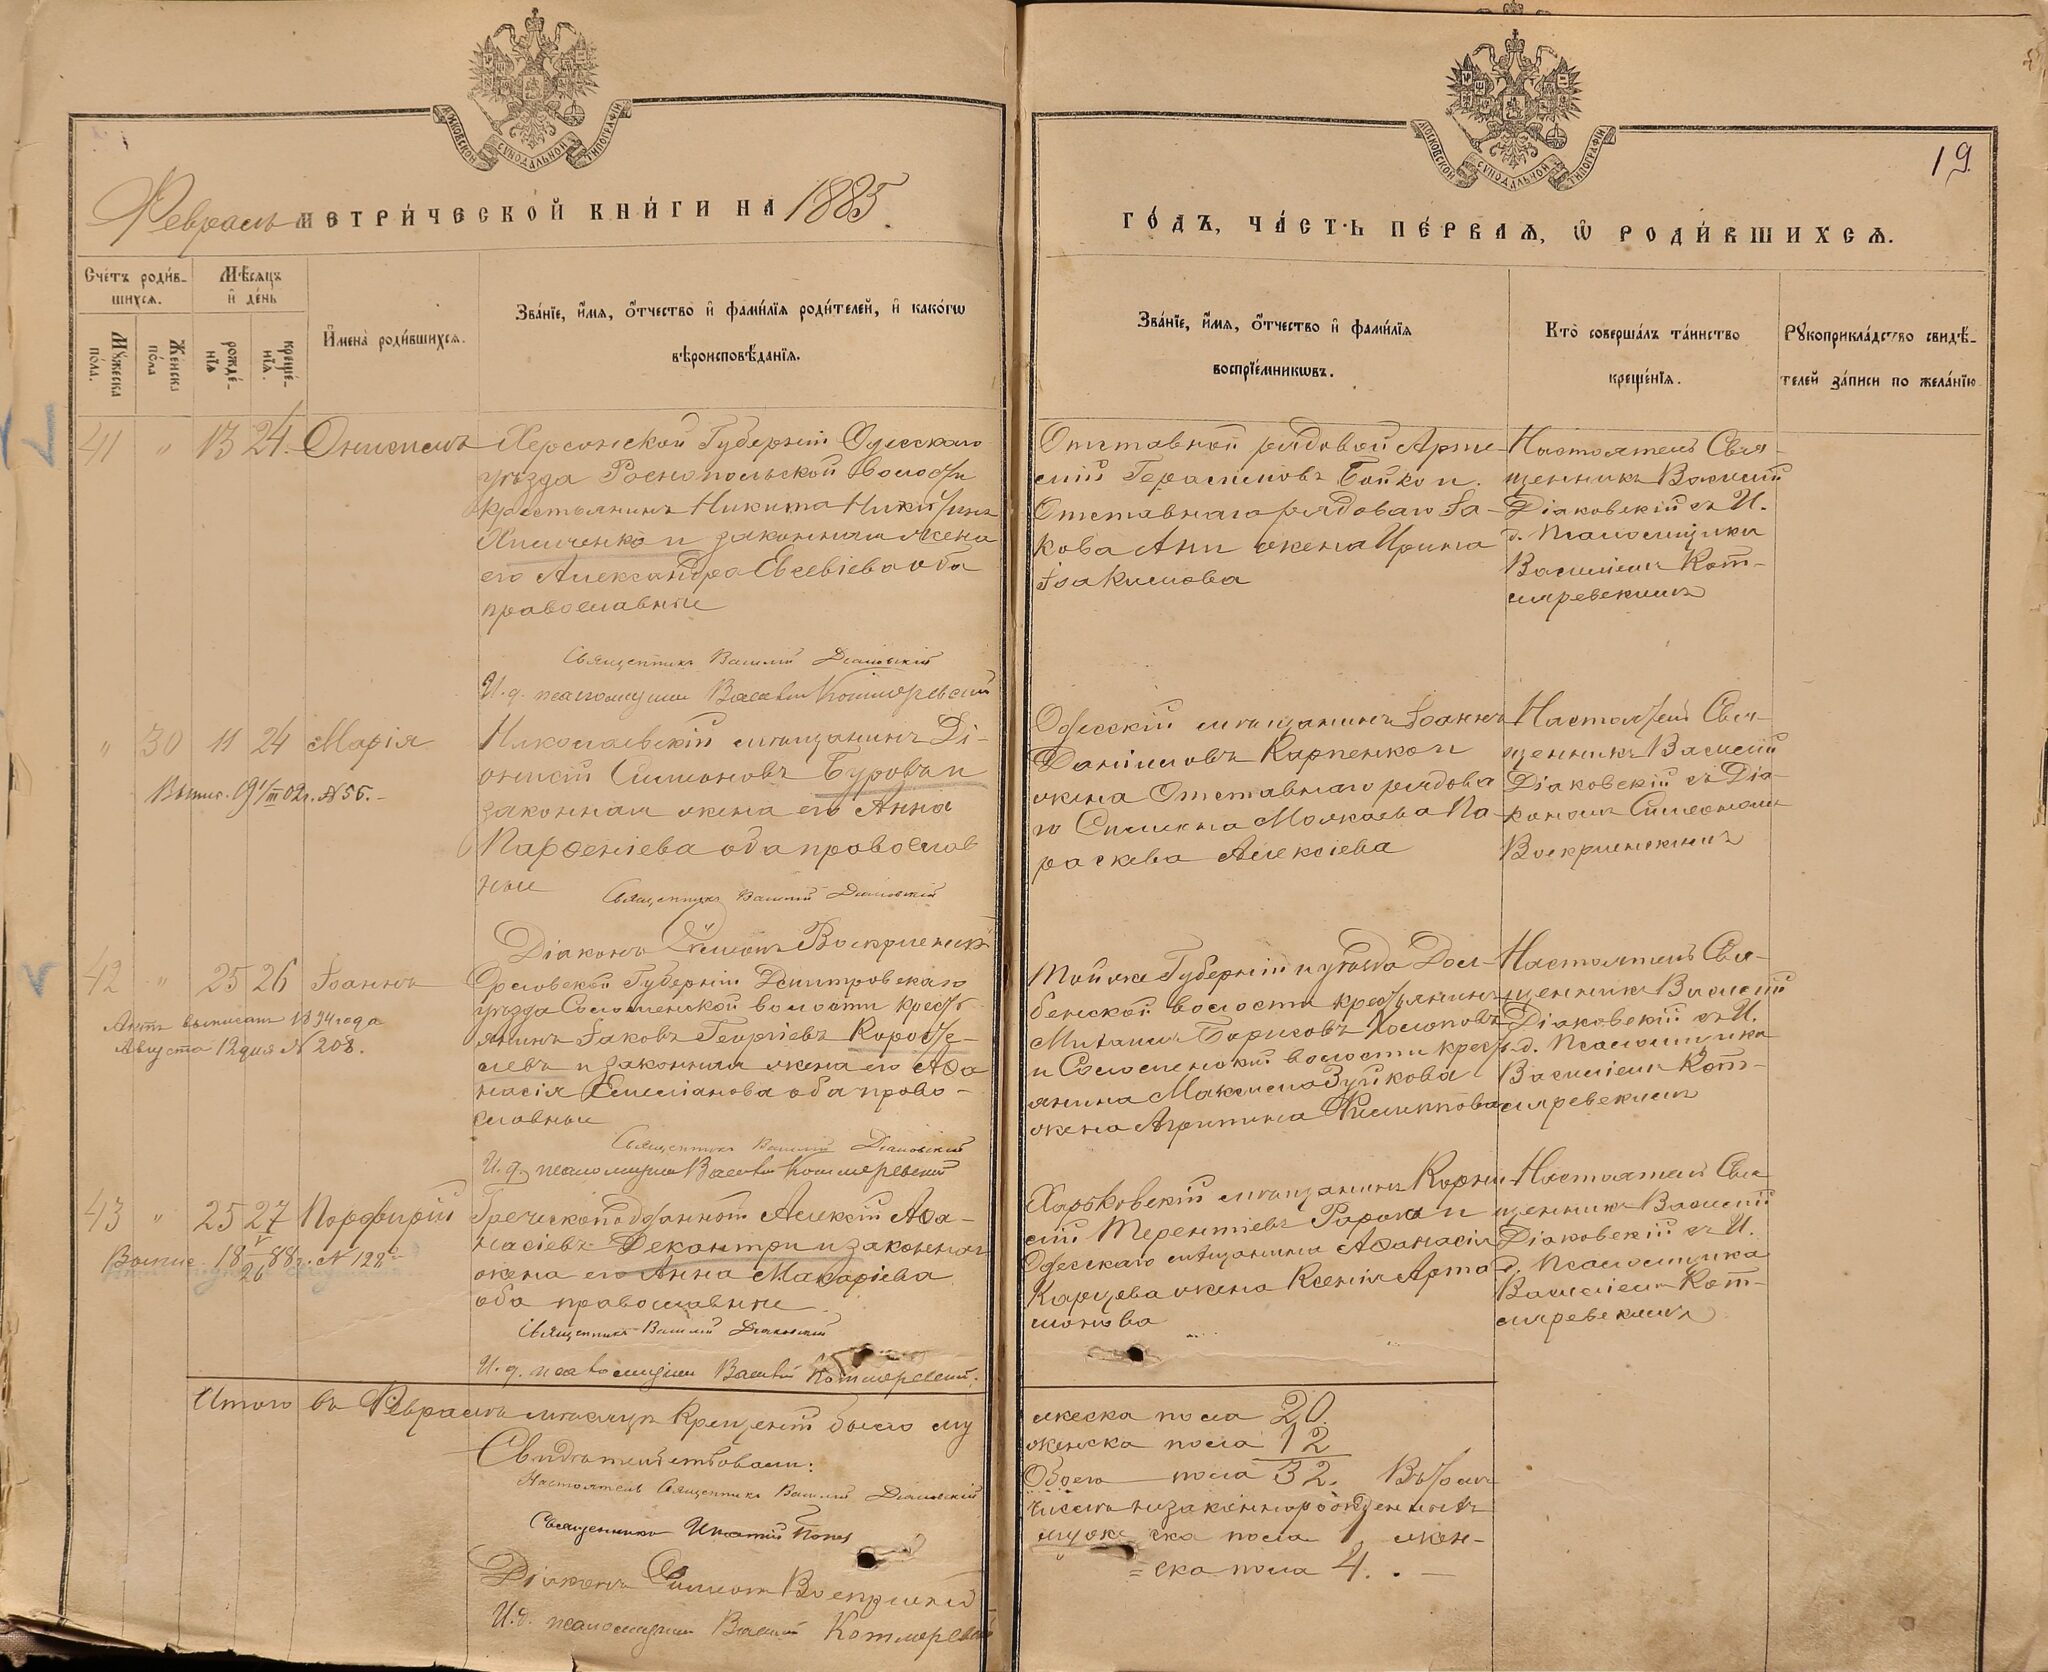 МОСКОВСКОЙ СѴНОДАЛЬНОЙ ТИПОГРАФІИ
МОСКОВСКОЙ СѴНОДАЛЬНОЙ ТИПОГРАФІИ
19
Февраль МЕТРИ́ЧЕСКОЙ КНИ́ГИ НА 1885
ГО́ДЪ, ЧА́СТЬ ПЕ́РВАѦ, Ѡ РОДИ́ВШИХСѦ.
Сче́тъ роди́в-
шихсѧ.
Мꙋ́жеска по́ла.
Же́нска по́ла
Мѣ́сѧцъ и де́нь
рожде́нїѧ
креще́нїѧ.
Имена̀ роди́вшихсѧ.
Зва́нїе, и́мѧ, о́тчество и фами́лїѧ роди́телей, и како́гѡ
вѣроисповѣ́данїѧ.
Зва́нїе, и́мѧ, о́тчество и фами́лїѧ
воспрїе́мникѡвъ.
Кто̀ соверша́лъ та́инство
креще́нїѧ.
Рꙋкоприкла́дство свидѣ́-
телей за́писи по жела́нїю
41 " 13 24. Онисимъ
Херсонской Губерніи Одесскаго
уѣзда Роснопольской волости
крестьянинъ Никита Никитинъ
и законная жена
его Александра Евсевіева оба
православные
Священникъ Василій Діаковскій
И. д. псаломщика Василій Котляревскій
Отставной рядовой Арте-
мій Герасимовъ Бойко и
Отставнаго рядоваго Іа-
кова жена Ирина
Іоакимова
Настоятель Свя-
щенникъ Василій
Діаковскій съ И.
д. Псаломщика
Василіемъ Кот-
ляревскимъ
" 30 11 24 Марія
Выпис. 19 1/III 02 г. №56.
Николаевскій мѣщанинъ Ді-
онисій Симоновъ Буровъ и
законная жена его Анна
Парѳеніева оба православ
ные
Священникъ Василій Діаковскій
Діаконъ Симеонъ Воскресенскій
Одесскій мѣщанинъ Іоаннъ
Даніиловъ Карпенко и
жена Отставнаго рядова
го Па
раскева Алексіева
Настоятель Свя-
щенникъ Василій
Діаковскій съ Діа-
кономъ Симеономъ
Воскресенскимъ
42 " 25 26 Іоаннъ
Актъ выписанъ 1894 года
Августа 12 дня № 208.
Орловской Губерніи Дмитровскаго
уѣзда Соломенской волости кресть
янинъ Іаковъ Георгіевъ Коросте-
левъ и законная жена его Аѳа
насія Емеліанова оба право-
славные
Священникъ Василій Діаковскій
И. д. псаломщика Василій Котляревскій
Той же Губерніи и уѣзда
волости крестьянинъ
Михаилъ Борисовъ Холоповъ
и Соломенской волости крест-
янина Максима Зуйкова
жена Агрипина Филиппова
Настоятель Свя-
щенникъ Василій
Діаковскій съ И.
д. Псаломщика
Василіемъ Кот-
ляревскимъ
43 " 25 27 Порфирій
Выпис. 18 V/26 88 г. № 128
Греческоподданный Алексій Аѳа-
насіевъ Декантри и законная
жена его Анна Макаріева
оба православные
Священникъ Василій Діаковскій
И. д. псаломщика Василій Котляревскій
Харьковскій мѣщанинъ Корни
лій Терентіевъ и
Одесскаго мѣщанина Аѳанасія
Карцева жена Ксенія Арта
монова
Настоятель Свя
щенникъ Василій
Діаковскій съ И.
д. Псаломщика
Василіемъ Кот-
ляревскимъ
Итого въ Февралѣ мѣсяцѣ крещеній было му
жеска пола 20.
женска пола 12
Обоего пола 32. Въ томъ
числѣ незаконнорожденныхъ
муже ска пола 1, жен-
= ска пола 4. . –
Свидѣтельствовали:
Настоятель Священникъ Василій Діаковскій
Священникъ Игнатій Попов
Діаконъ Симеонъ Воскресенскій
И. д. псаломщика Василій Котляревскій